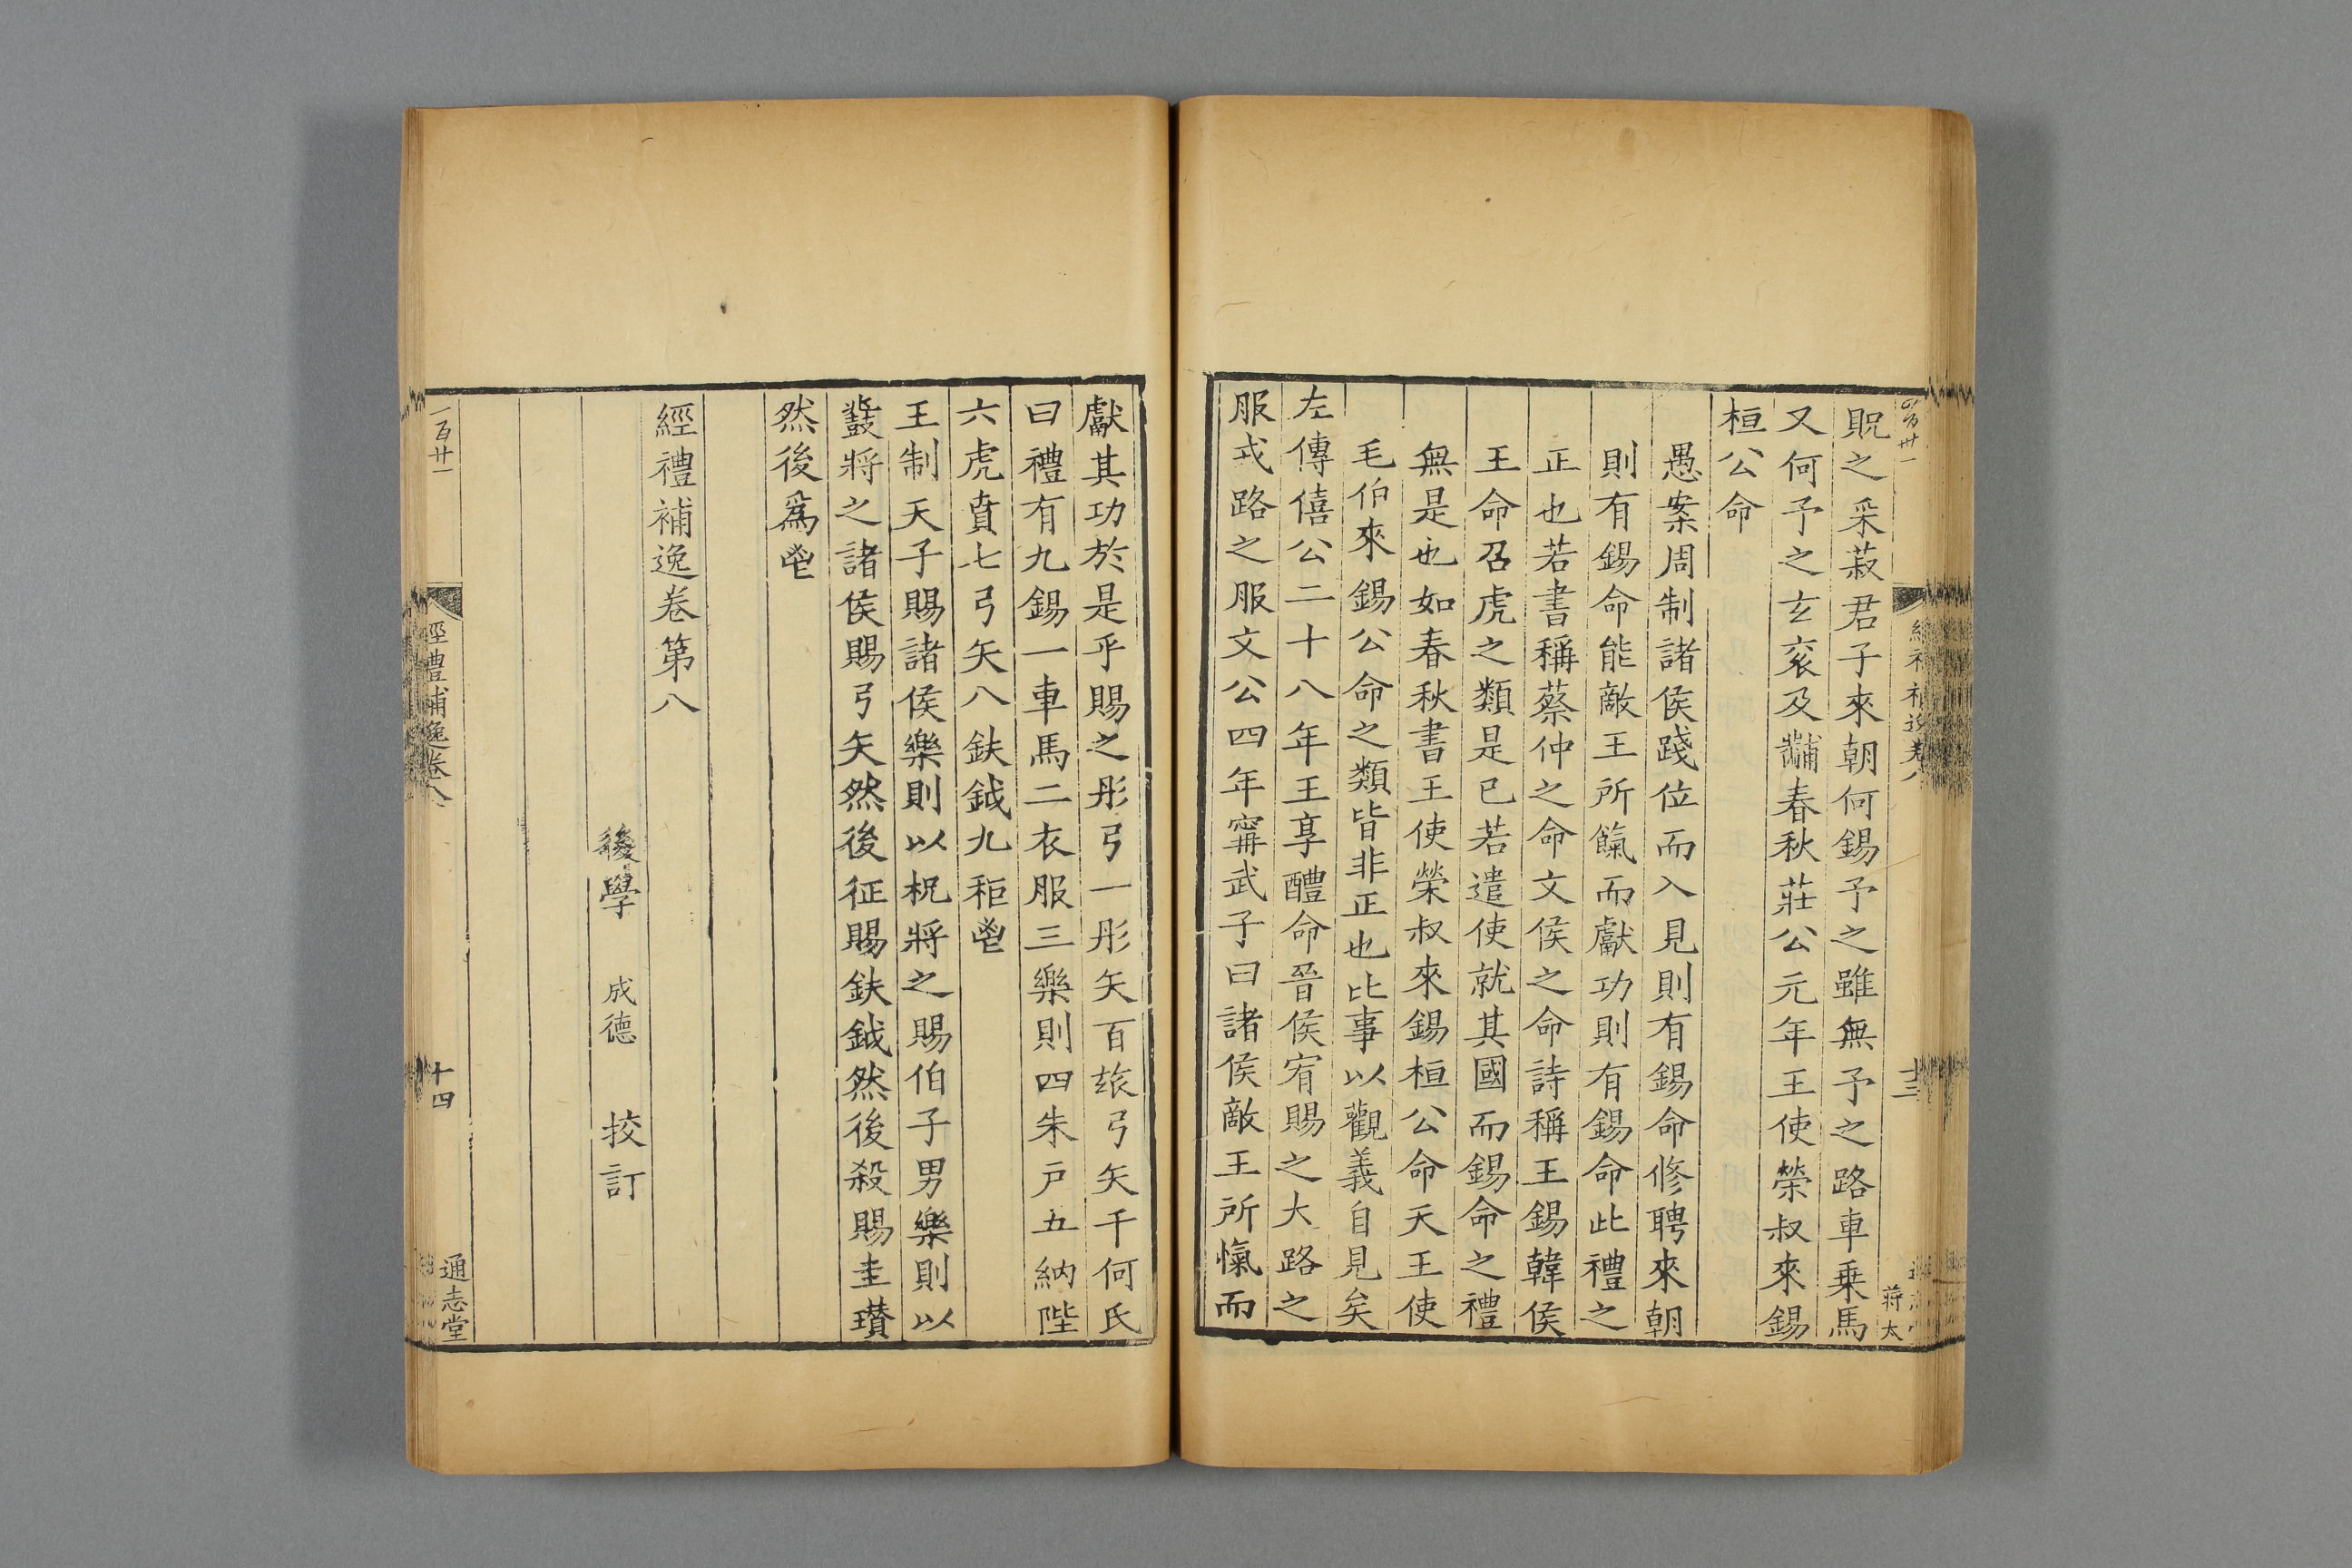 貺之采菽君子來朝何錫予之雖無予之路車乗馬
又何予之玄袞及黼春秋莊公元年王使榮叔來錫
桓公命
愚案周制諸侯踐位而入見則有錫命修聘來朝
則有錫命能敵王所餼而獻功則有錫命此禮之
正也若書稱蔡仲之命文侯之命詩稱王錫韓侯
王命召虎之類是已若遣使就其國而錫命之禮
無是也如春秋書王使榮叔來錫桓公命天王使
毛伯來錫公命之類皆非正也比事以觀義自見矣
左傳僖公二十八年王享醴命晉侯宥賜之大路之
服戎路之服文公四年甯武子曰諸侯敵王所愾而
蔣太
獻其功於是乎賜之彤弓一彤矢百玈弓矢千何氏
曰禮有九錫一車馬二衣服三樂則四朱戸五納陛
六虎賁七弓矢八鈇鉞九秬鬯
王制天子賜諸侯樂則以柷將之賜伯子男樂則以
鼗將之諸侯賜弓矢然後征賜鈇鉞然後殺賜圭瓚
然後爲鬯
經禮補逸卷第八
後學 成德 挍訂
一百廿一
經禮補逸卷八
十四
通志堂